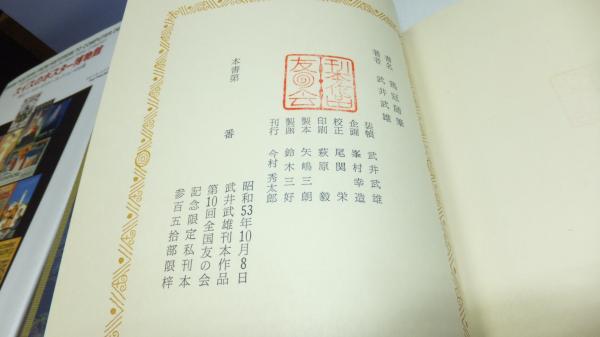 書名 鶏冠随筆
著者 武井武雄
装幀 武井武雄
企画 峯村幸造
校正 尾関栄
印刷 萩原毅
製本 矢嶋三朗
製函 鈴木三好
刊行 今村秀太郎
昭和53年10月8日
武井武雄刊本作品
第10回全国友の会
記念限定私刊本
参百五拾部限梓
本書第 番
刊本作品
友の会